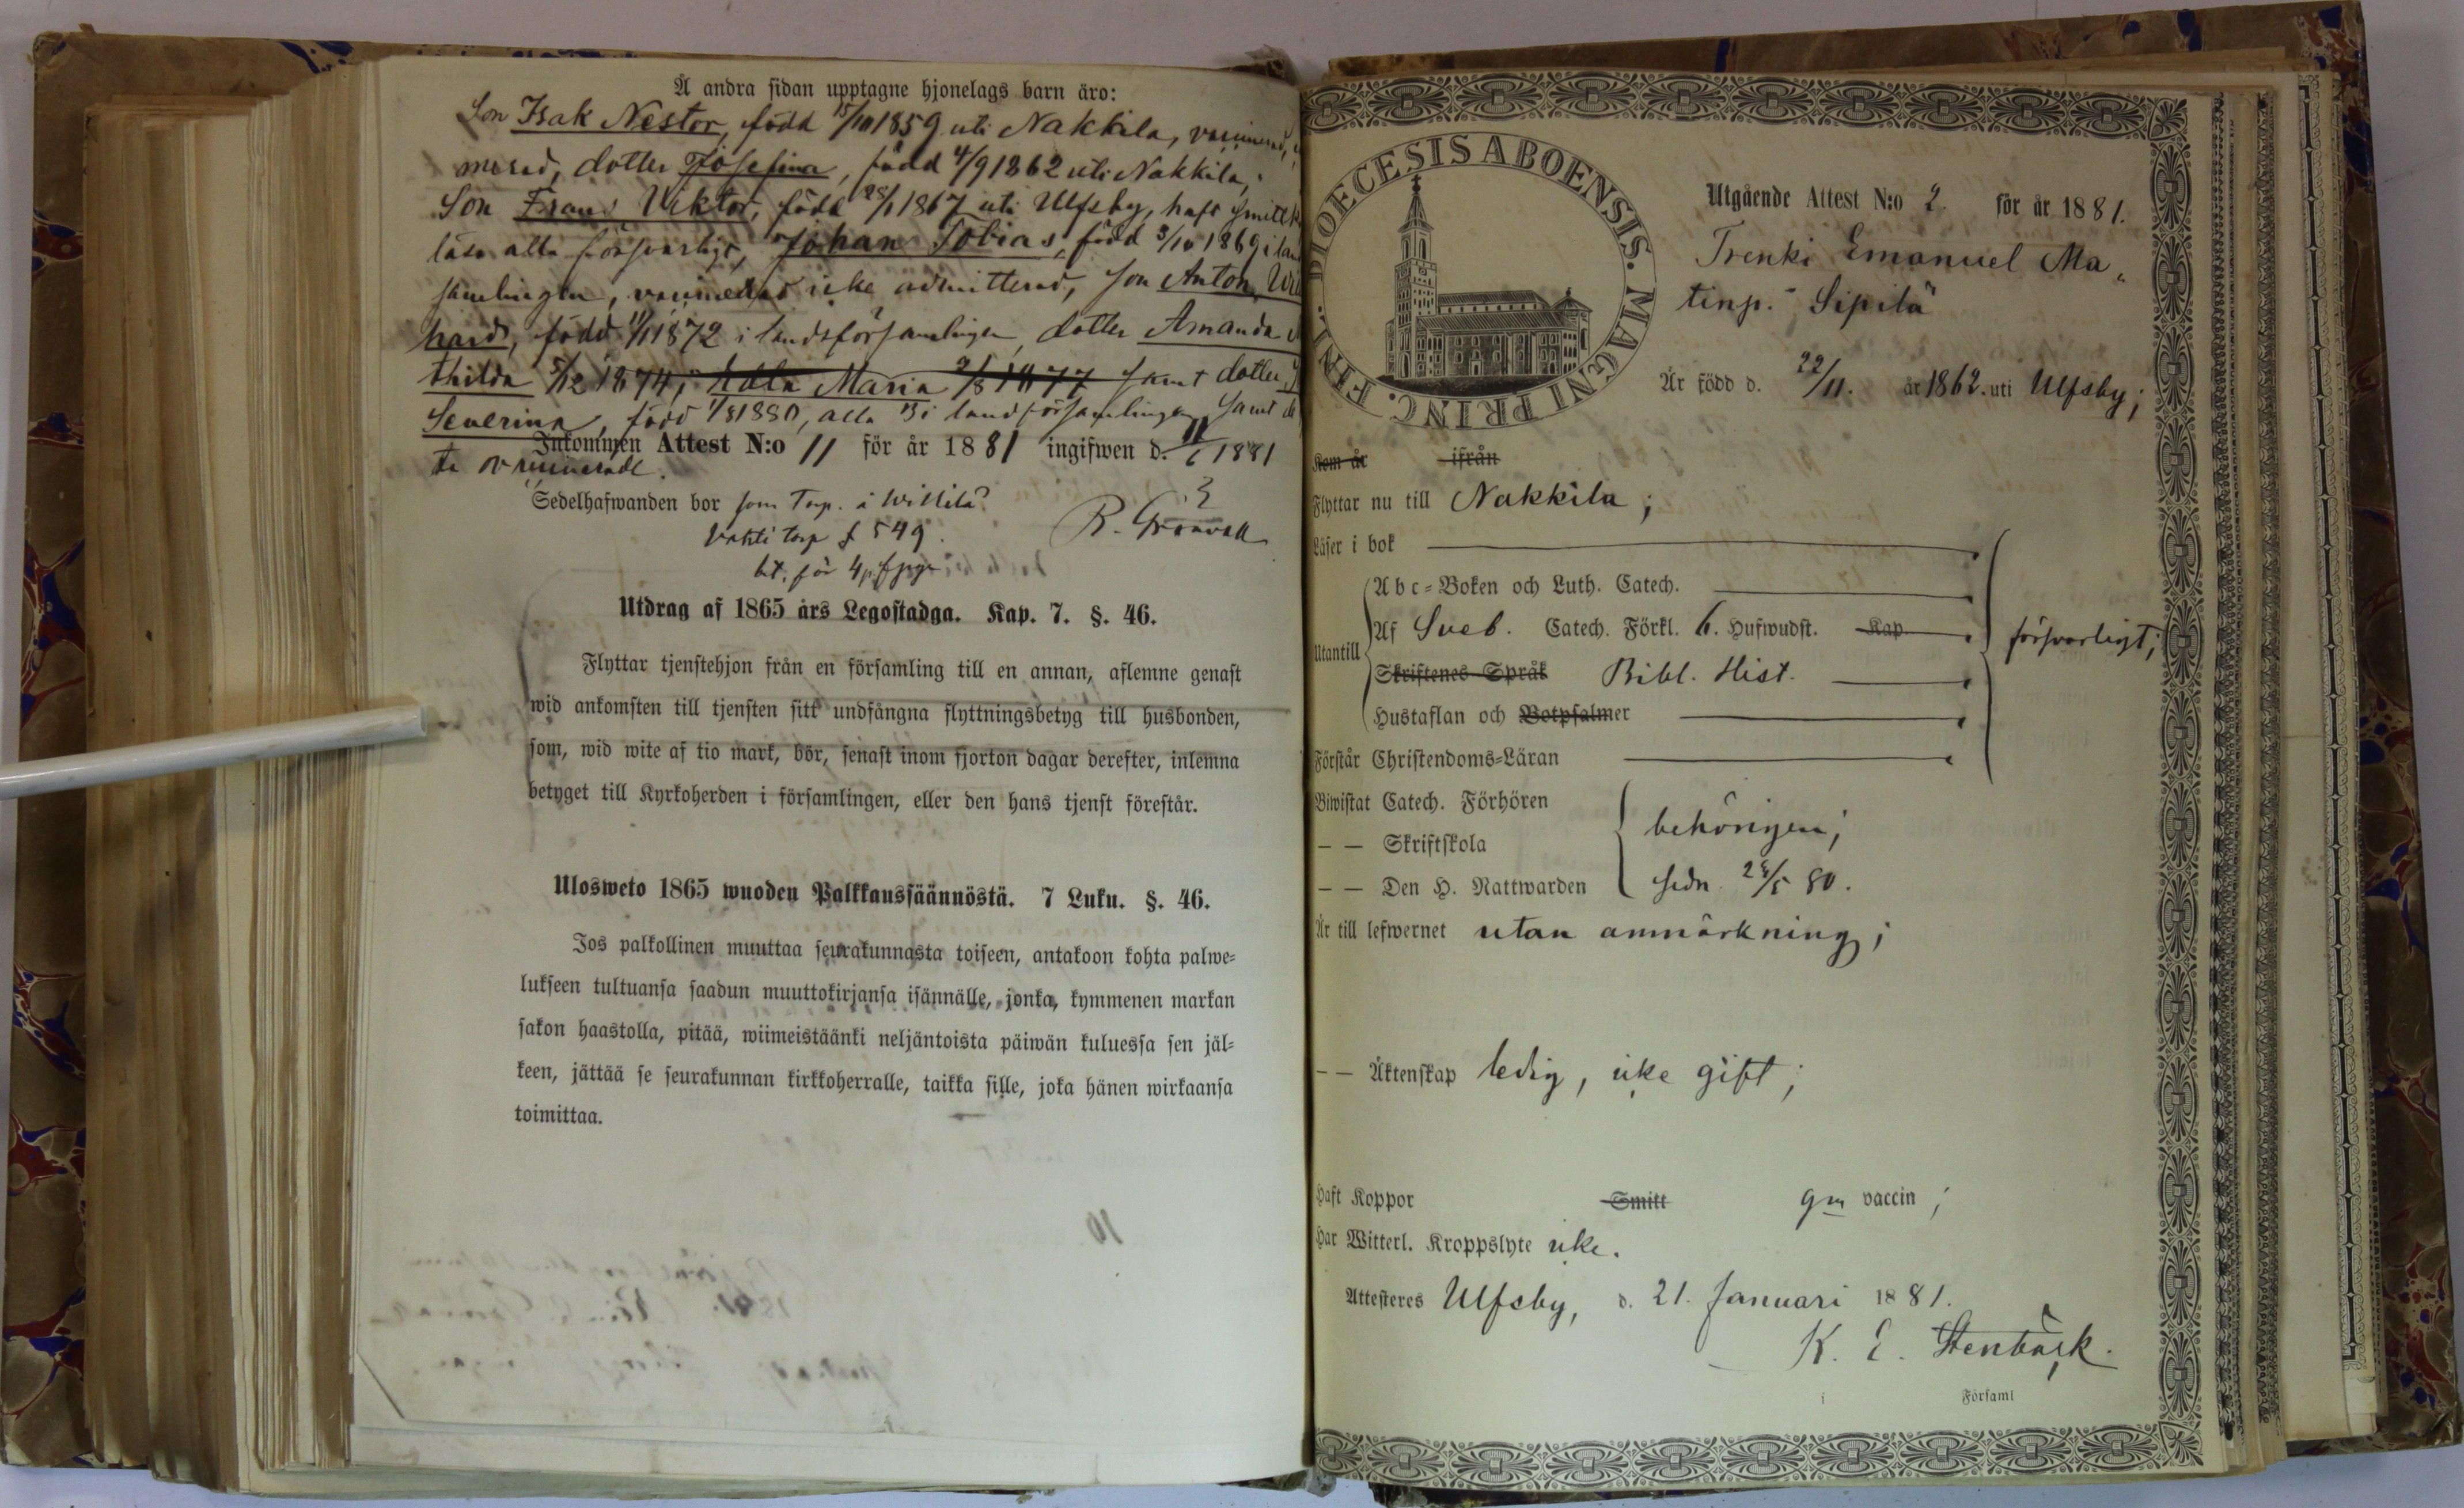 Å andra sidan upptagne hjonelags barn äro:
Son Isak Nestor, född 15/10 1859 uti Nakkila,
dotter Josefina, född 4/9 1862 uti Nakkila,
Son Frans Viktor, född 28/1 1867 uti Ulfsby, haft
läsa alla försvarligt, Johan Tobias, född 3/10 1869 i
samlingen, icke admitterad, son Anton
hard, född 1/11 1872 i landsförsamlingen, dotter Amanda
thilda 5/12 1874, Adla Maria 2/8 1877 samt dotter
Severina, född 1/8 1880, alla i landsförsamlingen, samt
Inkommen Attest N:o 11 för år 1881 ingifwen d. 11/6 1881
Sedelhafwanden bor som Torp. å Willilä
torp f 549.
R. Grönvall
bet. för 4
Utdrag af 1865 års Legostadga. Kap. 7. §. 46.
Flyttar tjenstehjon från en församling till en annan, aflemne genast
wid ankomsten till tjensten sitt undfångna flyttningsbetyg till husbonden,
som, wid wite af tio mark, bör, senast inom fjorton dagar derefter, inlemna
betyget till Kyrkoherden i församlingen, eller den hans tjenst förestår.
Ulosweto 1865 wuoden Palkkaussäännöstä. 7 Luku. §. 46.
Jos palkollinen muuttaa seurakunnasta toiseen, antakoon kohta palwe=
lukseen tultuansa saadun muuttokirjansa isännälle, jonka, kymmenen markan
sakon haastolla, pitää, wiimeistäänki neljäntoista päiwän kuluessa sen jäl=
keen, jättää se seurakunnan kirkkoherralle, taikka sille, joka hänen wirkaansa
toimittaa.
DIOECESIS ABOENSIS. MAGNI PRINC. FINL.
Utgående Attest N:o 2 för år 1881.
Trenki Emanuel Ma„
tinp. Sipilä
Är född d. 22/11. år 1862. uti Ulfsby;
Kom år ifrån
Flyttar nu till Nakkila;
Läser i bok
Abc=Boken och Luth. Catech.
Utantill
Af Sveb. Catech. Förkl. 6. Hufwudst. Kap.
försvarligt;
Skriftenes Språk Bibl. Hist.
Hustaflan och Botpsalmer
Förstår Christendoms=Läran
Biwistat Catech. Förhören
behörigen;
— — Skriftskola
— — Den H. Nattwarden sedn. 28/5 80.
Är till lefwernet utan anmärkning;
— — Äktenskap ledig, icke gift;
Haft Koppor Smitt gm vaccin;
Har Witterl. Kroppslyte icke.
Attesteres Ulfsby, d. 21. Januari 1881.
K. E. Stenbäck.
i Församl